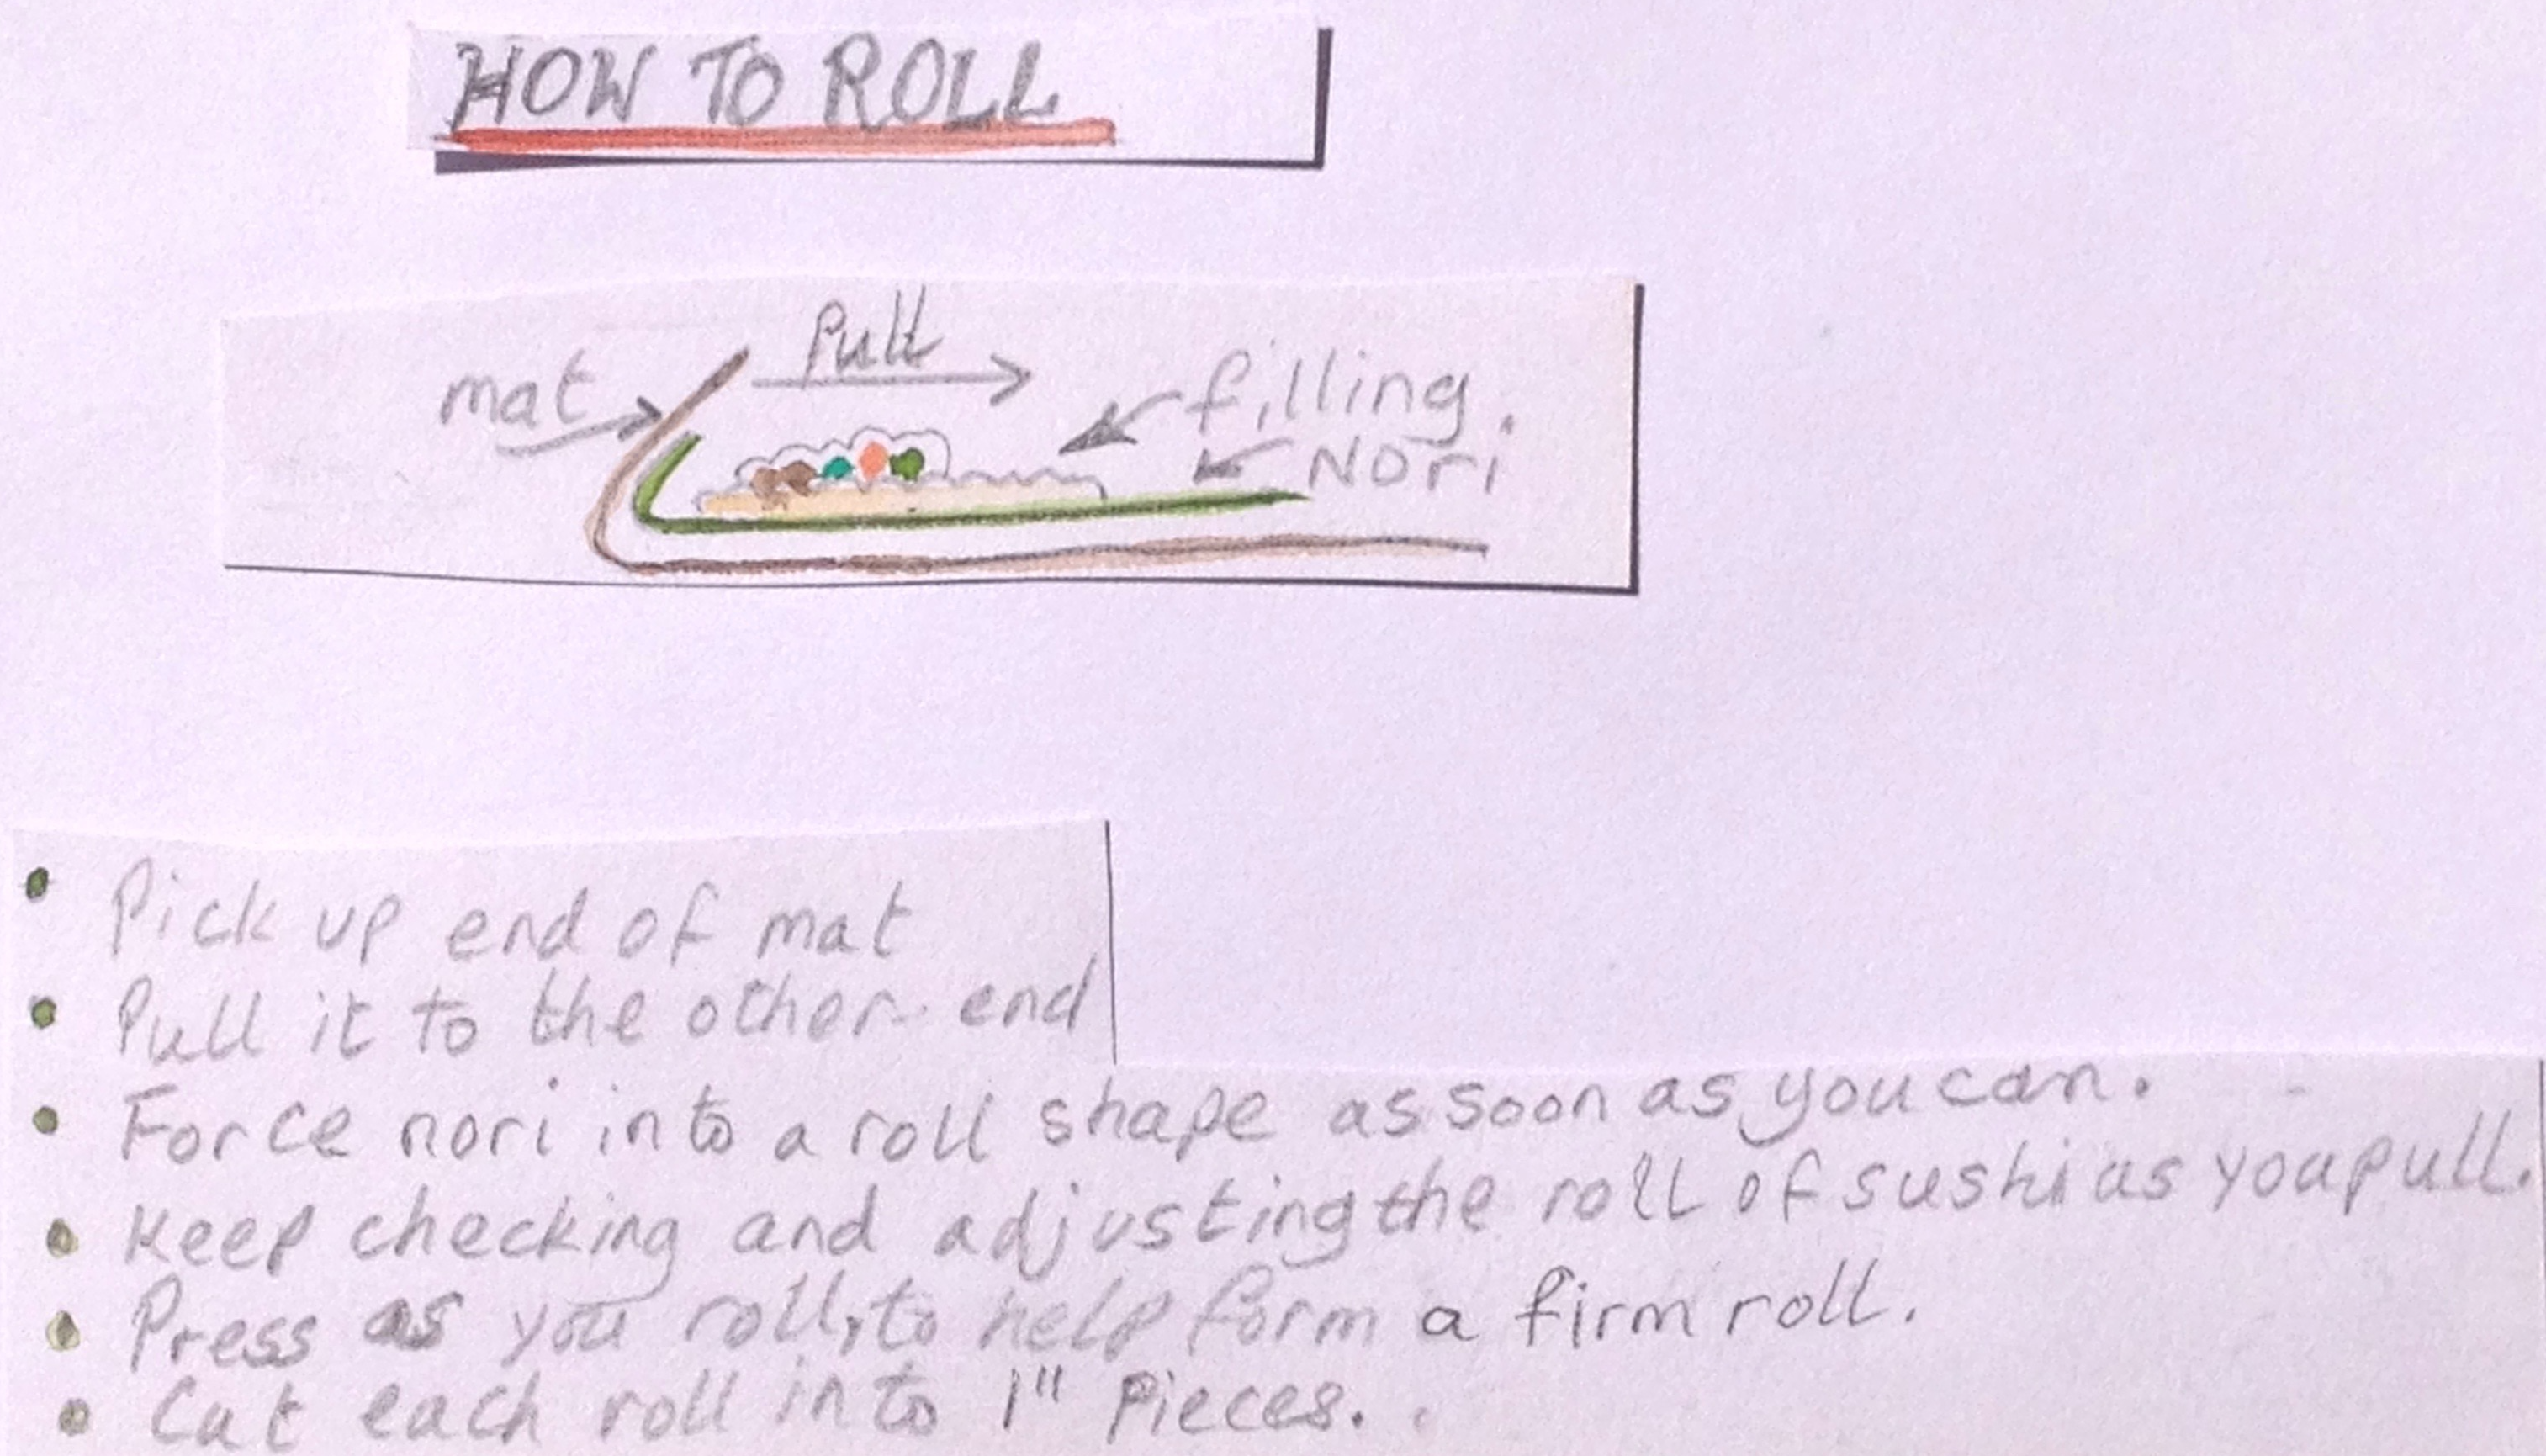 HOW TO ROLL
Pull
mat
filling.
Nori
• Pick up end of mat
• Pull it to the other end
• Force nori into a roll shape as soon as you can.
• Keep checking and adjusting the roll of sushi as you pull.
• Press as you roll, to help form a firm roll.
• Cut each roll into 1" pieces.